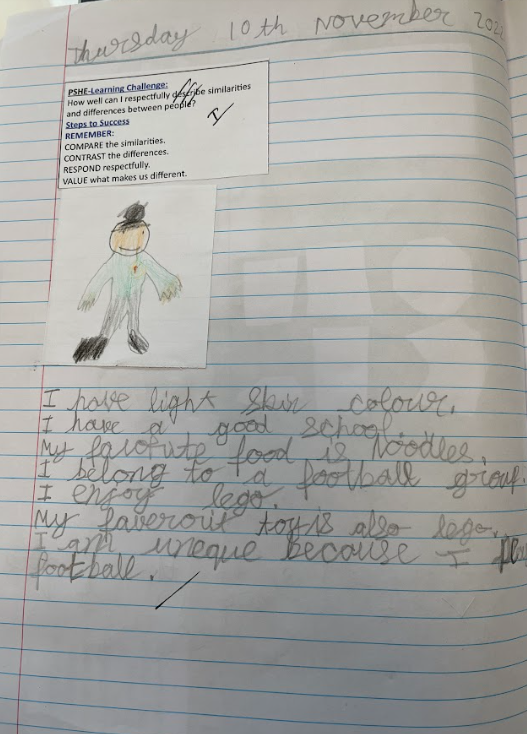 Thursday 10th November 202
PSHE-Learning Challenge:
How well can I respectfully describe similarities
and differences between people?
Steps to Success
REMEMBER:
COMPARE the similarities.
CONTRAST the differences.
RESPOND respectfully.
VALUE what makes us different.
I have light skin colour.
I have a good school.
My farofute food is Noodles.
I belong to a football group.
I enjoy lego.
My faverout toy is also lego.
I am uneque because I
football.